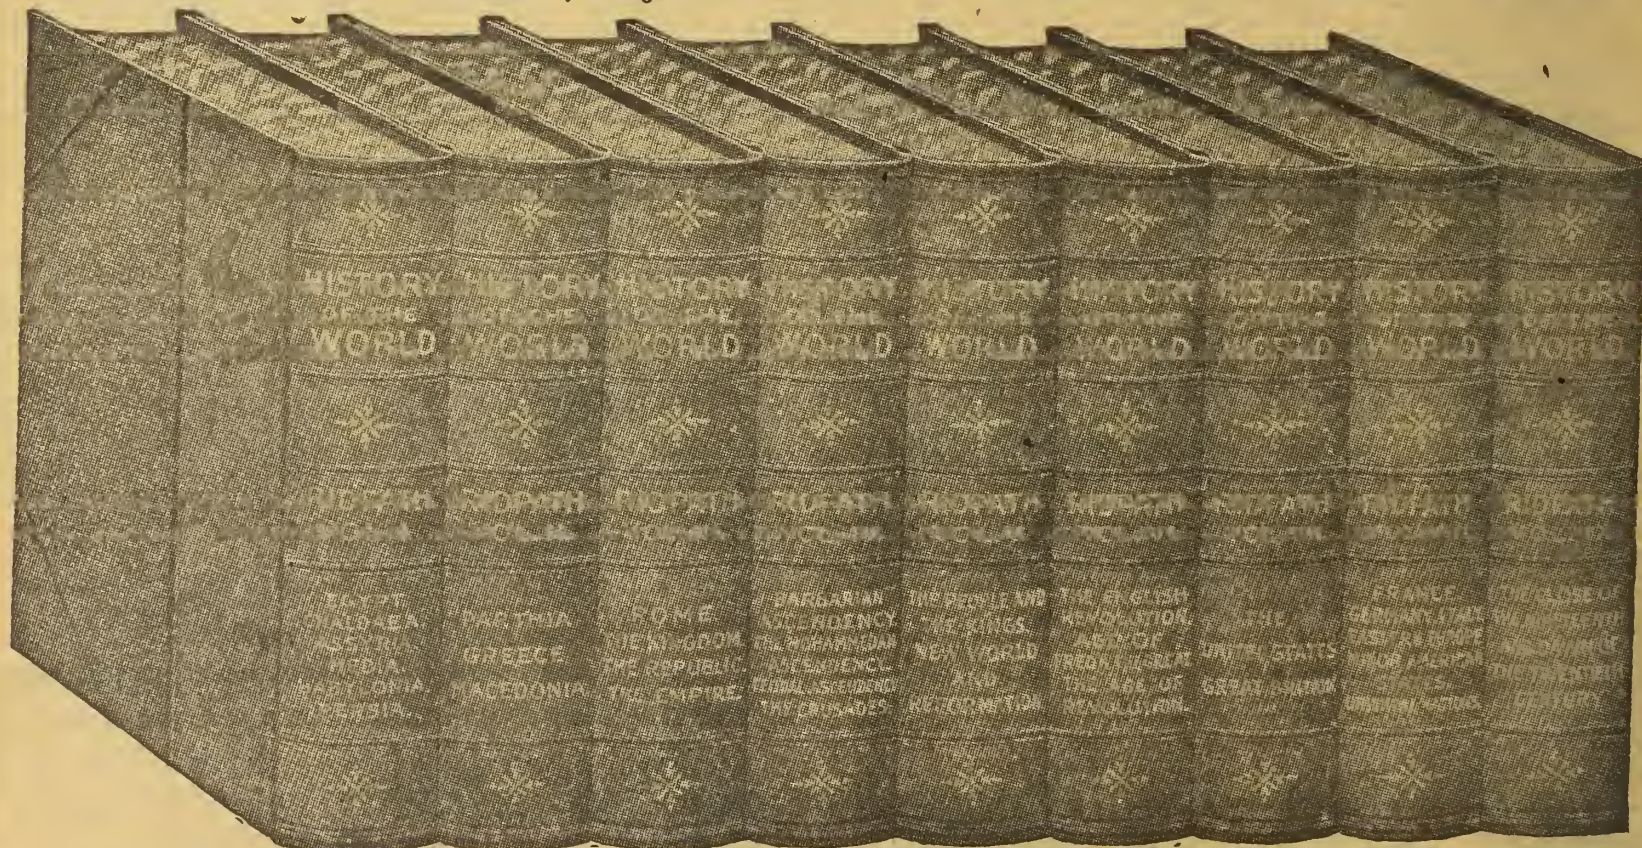 HISTORY
OF THE
WORLD
RIDPATH
EGYPT,
CHALDAEA,
ASSYRIA,
MEDIA,
BABYLONIA,
PERSIA.
HISTORY
OF THE
WORLD
RIDPATH
PARTHIA
GREECE
MACEDONIA
HISTORY
OF THE
WORLD
RIDPATH
ROME
THE KINGDOM
THE REPUBLIC
THE EMPIRE
HISTORY
OF THE
WORLD
RIDPATH
BARBARIAN
ASCENDENCY
THE MOHAMMEDAN
ASCENDENCY
FEUDAL ASCENDENCY
THE CRUSADES
HISTORY
OF THE
WORLD
RIDPATH
THE PEOPLE AND
THE KINGS
NEW WORLD
AND
REFORMATION
HISTORY
OF THE
WORLD
RIDPATH
THE ENGLISH
REVOLUTION,
AGE OF
FREDK THE GREAT
THE AGE OF
REVOLUTION.
HISTORY
OF THE
WORLD
RIDPATH
THE
UNITED STATES
GREAT BRITAIN
HISTORY
OF THE
WORLD
RIDPATH
FRANCE
GERMANY, ITALY
EASTERN EUROPE
MINOR AMERICAN
STATES
HISTORY
OF THE
WORLD
RIDPATH
THE CLOSE OF